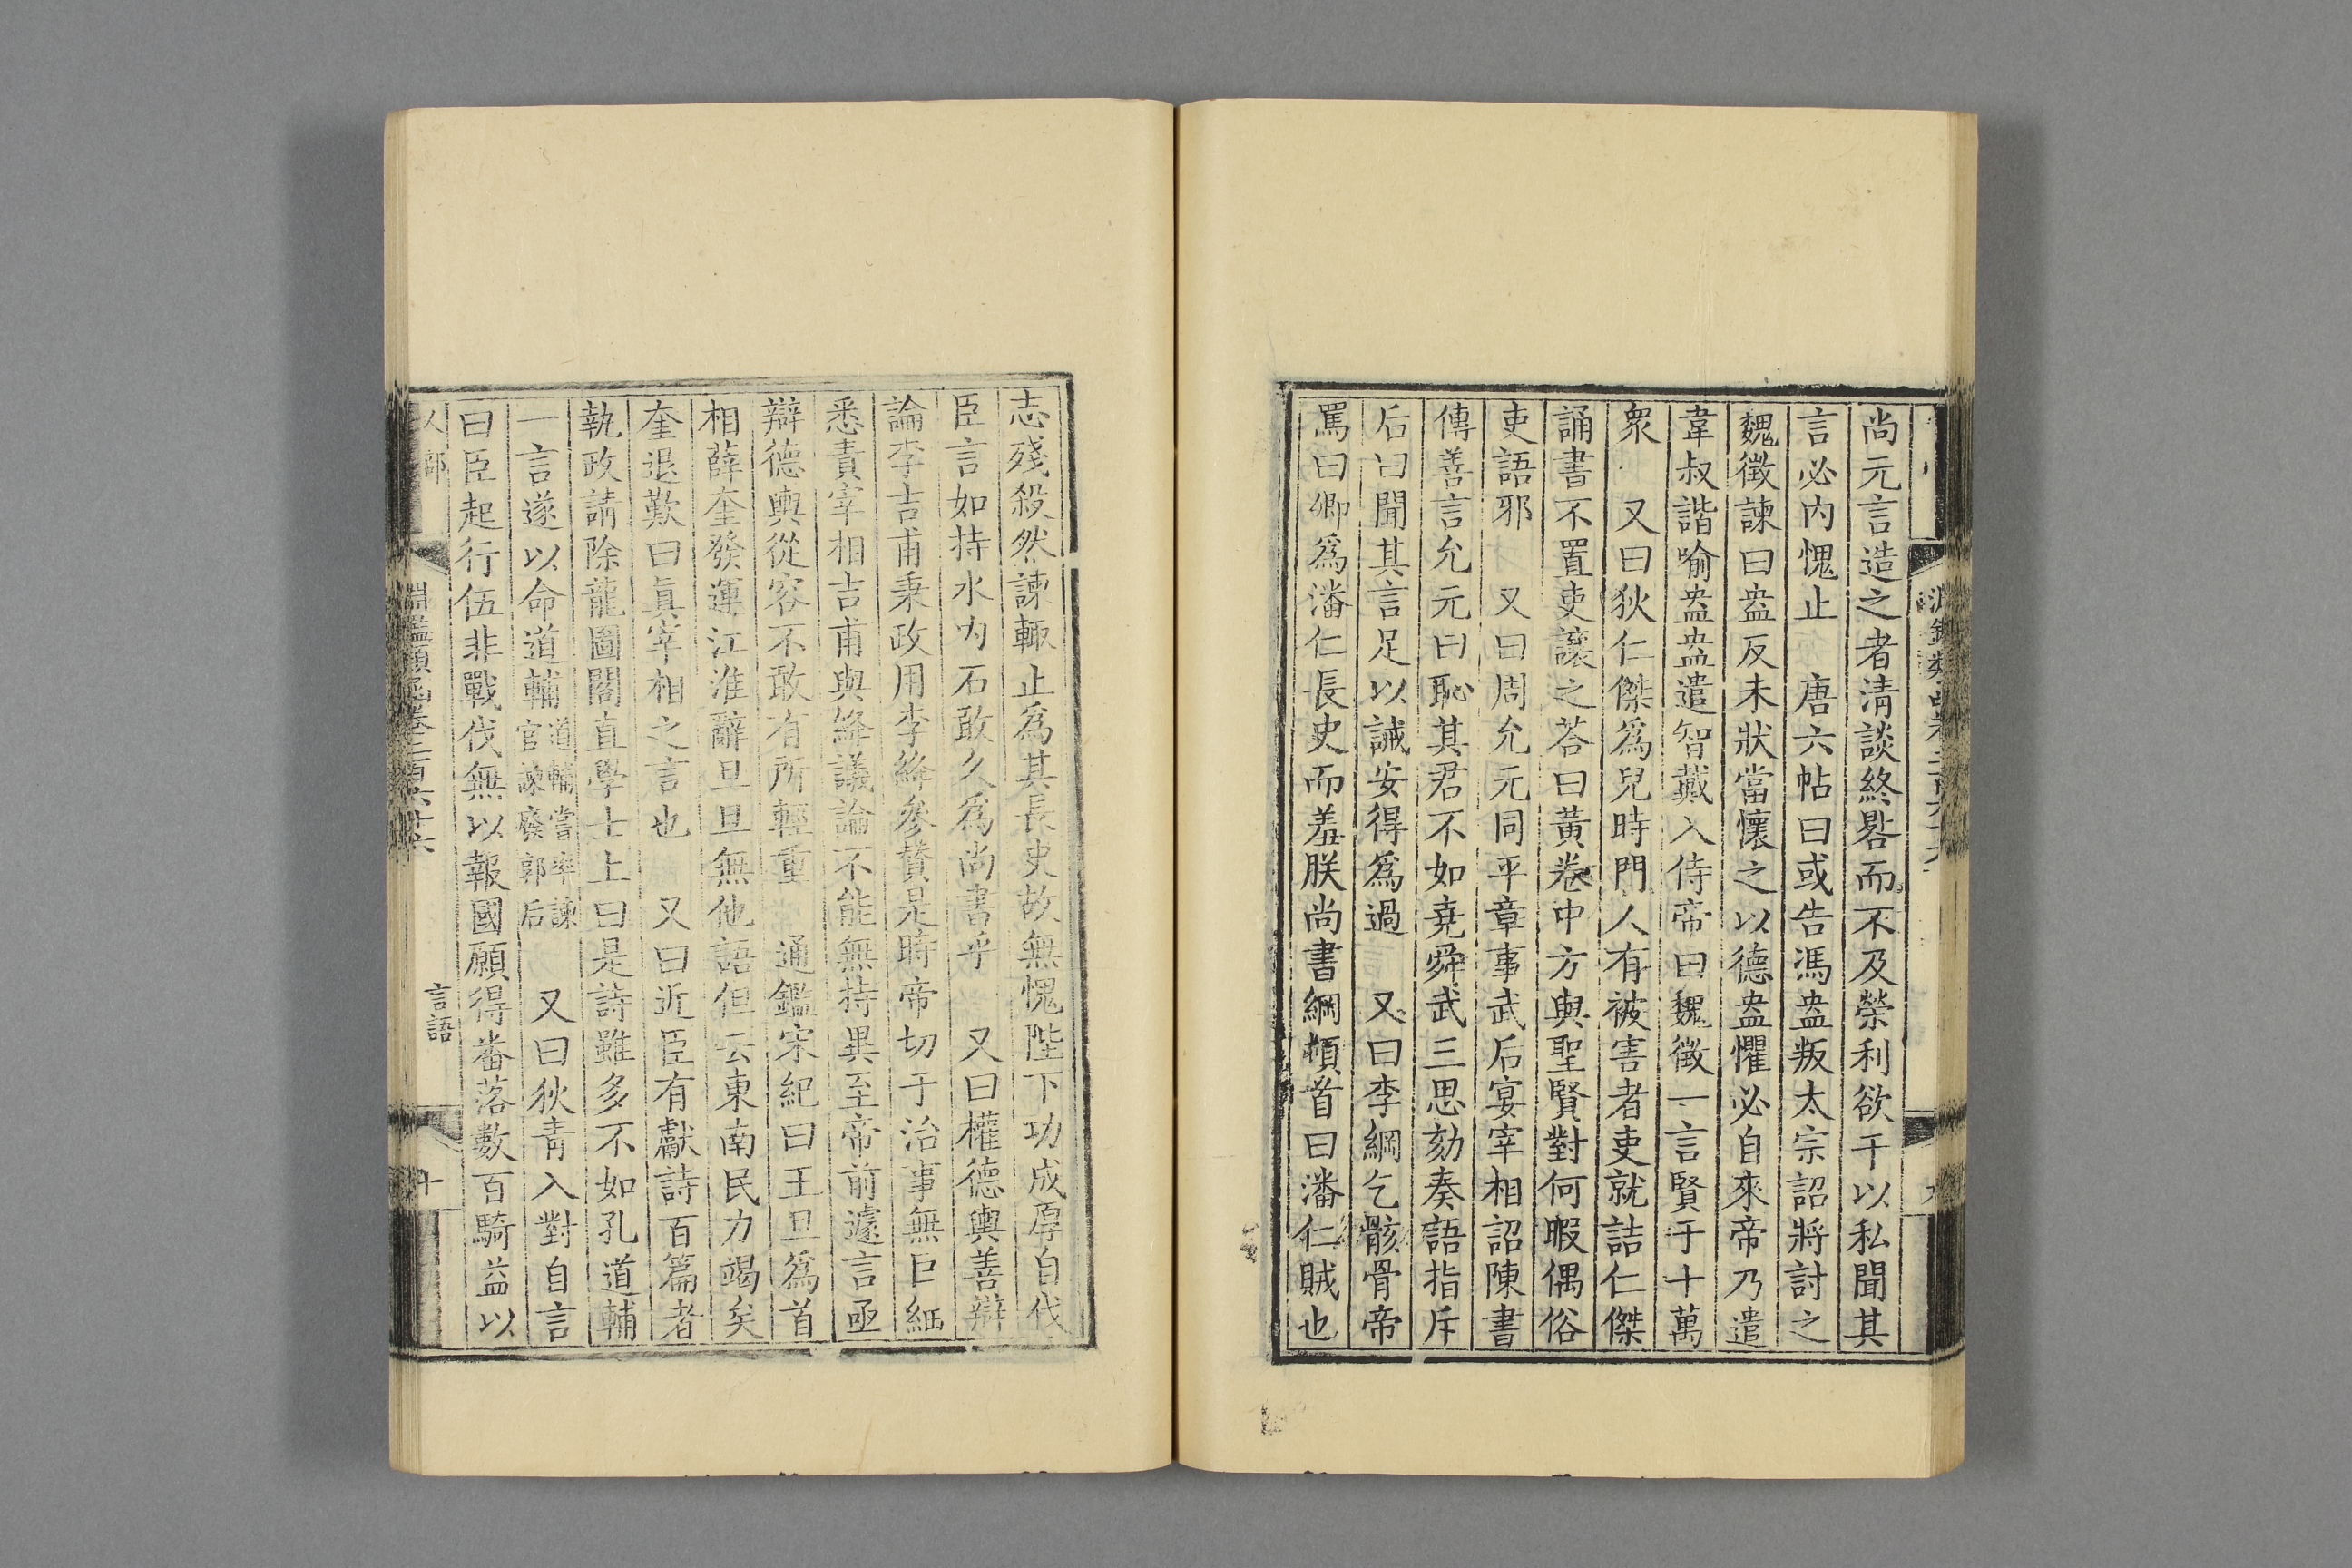 尚元言造之者清談終晷而不及榮利欲干以私聞其
言必内愧止　唐六帖曰或告馮盎叛太宗詔將討之
魏徵諫曰盎反未狀當懷之以德盎懼必自來帝乃遣
韋叔諧喻盎盎遣智戴入侍帝曰魏徵一言賢于十萬
衆　又曰狄仁傑爲兒時門人有被害者吏就詰仁傑
誦書不置吏讓之荅曰黃卷中方與聖賢對何暇偶俗
吏語邪　又曰周允元同平章事武后宴宰相詔陳書
傳善言允元曰恥其君不如堯舜武三思劾奏語指斥
后曰聞其言足以誡安得爲過　又曰李綱乞骸骨帝
罵曰卿爲潘仁長史而羞朕尚書綱頓首曰潘仁賊也
志殘殺然諫輒止爲其長史故無愧陛下功成厚自伐
臣言如持水内石敢久爲尚書乎　又曰權德輿善辯
論李吉甫秉政用李絳參贊是時帝切于治事無巨細
悉責宰相吉甫與絳議論不能無持異至帝前遽言亟
辯德輿從容不敢有所輕重　通鑑宋紀曰王旦爲首
相薛奎發運江淮辭旦旦無他語但云東南民力竭矣
奎退歎曰眞宰相之言也　又曰近臣有獻詩百篇者
執政請除龍圖閣直學士上曰是詩雖多不如孔道輔
一言遂以命道輔道輔嘗率諫官諫廢郭后　又曰狄青入對自言
曰臣起行伍非戰伐無以報國願得蕃落數百騎益以
人部
淵鑑類函卷二百六十六
言語
十